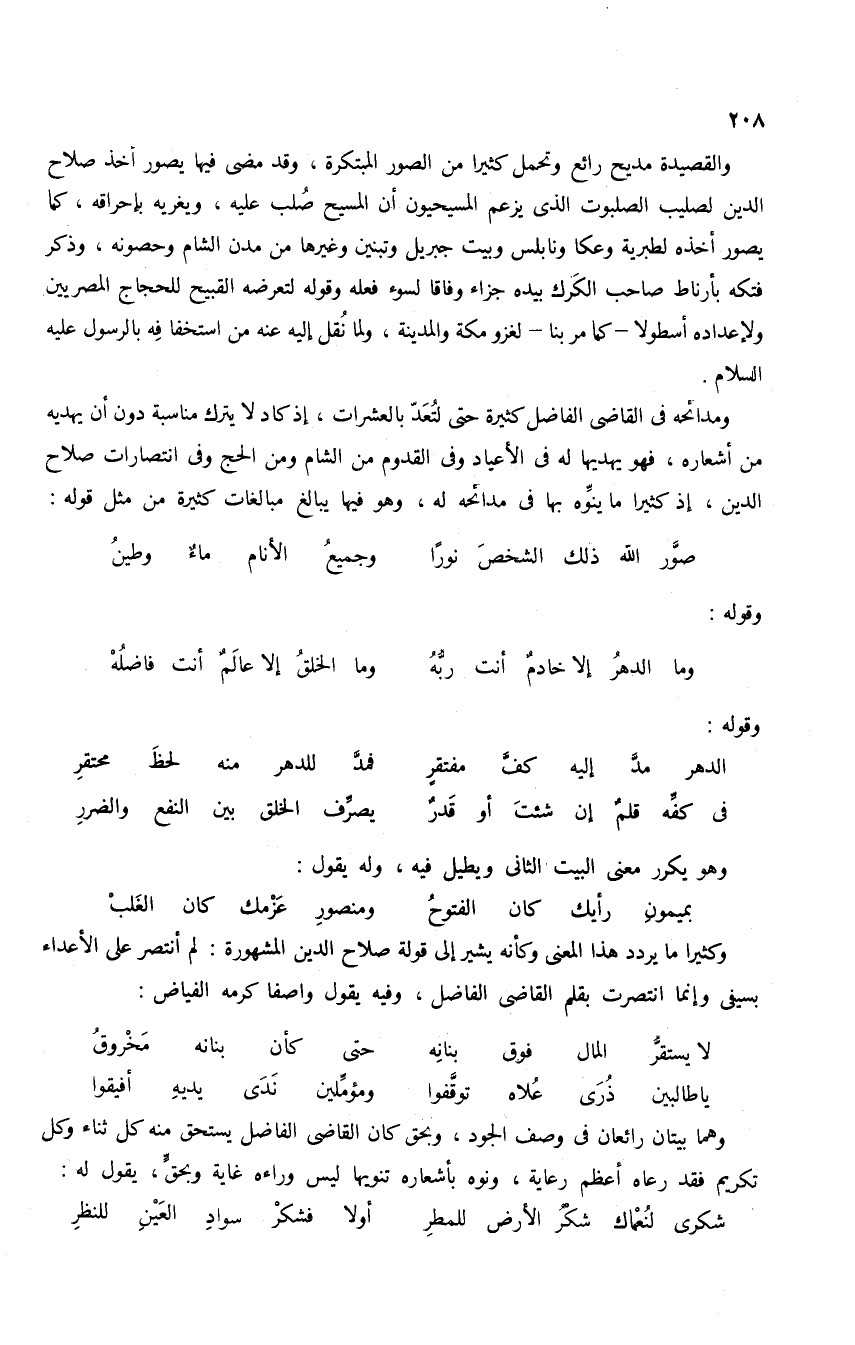 ٢٠٨
والقصيدة مديح رائع وتحمل كثيرا من الصور المبتكرة ، وقد مضى فيها يصور أخذ صلاح
الدين لصليب الصلبوت الذى يزعم المسيحيون أن المسيح صُلب عليه ، ويغريه بإحراقه ، كما
يصور أخذه لطبرية وعكا ونابلس وبيت جبريل وتبنين وغيرها من مدن الشام وحصونه ، وذكر
فتكه بأرناط صاحب الكَرك بيده جزاء وفاقا لسوء فعله وقوله لتعرضه القبيح للحجاج المصريين
ولإعداده أسطولا – كما مر بنا – لغزو مكة والمدينة ، ولما نُقل إليه عنه من استخفا فِه بالرسول عليه
السلام .
ومدائحه فى القاضى الفاضل كثيرة حتى لتُعَدّ بالعشرات ، إذ كاد لا يترك مناسبة دون أن يهديه
من أشعاره ، فهو يهديها له فى الأعياد وفى القدوم من الشام ومن الحج وفى انتصارات صلاح
الدين ، إذ كثيرا ما ينوِّه بها فى مدائحه له ، وهو فيها يبالغ مبالغات كثيرة من مثل قوله :
صوَّر الله ذلك الشخصَ نورًا وجميعُ الأنام ماءٌ وطينُ
وقوله :
وما الدهرُ إلا خادمٌ أنت ربُّهُ وما الخلقُ إلا عالَمٌ أنت فاضلُهْ
وقوله :
الدهر مدَّ إليه كفَّ مفتقرٍ فمدَّ للدهر منه لحظَ محتقرِ
فى كفِّه قلمٌ إن شئتَ أو قَدرٌ يصرِّف الخلق بين النفع والضررِ
وهو يكرر معنى البيت الثانى ويطيل فيه ، وله يقول :
بميمونِ رأيك كان الفتوحُ ومنصورِ عَزْمك كان الغَلبْ
وكثيرا ما يردد هذا المعنى وكأنه يشير إلى قولة صلاح الدين المشهورة : لم أنتصر على الأعداء
بسيفى وإنما انتصرت بقلم القاضى الفاضل ، وفيه يقول واصفا كرمه الفياض :
لا يستقرُّ المال فوق بنانِه حتى كأن بنانه مَخْروقُ
ياطالبين ذُرَى عُلاه توقَّفوا ومؤمِّلين نَدَى يديهِ أفيقوا
وهما بيتان رائعان فى وصف الجود ، وبحق كان القاضى الفاضل يستحق منه كل ثناء وكل
تكريم فقد رعاه أعظم رعاية ، ونوه بأشعاره تنويها ليس وراءه غاية وبحقٍّ، يقول له :
شكرى لنُعْماك شكرُ الأرض للمطرِ أولا فشكرْ سوادِ العَيْنِ للنظرِ